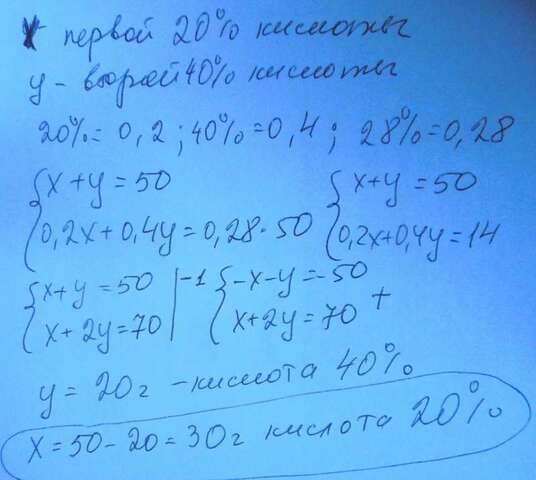 x - первой 20% кислоты
y - второй 40% кислоты
20% = 0,2; 40% = 0,4; 28% = 0,28
{x + y = 50 {x + y = 50
{0,2x + 0,4y = 0,28 · 50 {0,2x + 0,4y = 14
{x + y = 50 | -1 {-x - y = -50
{x + 2y = 70 | {x + 2y = 70 +
y = 20 г - кислота 40%
x = 50 - 20 = 30 г кислота 20%